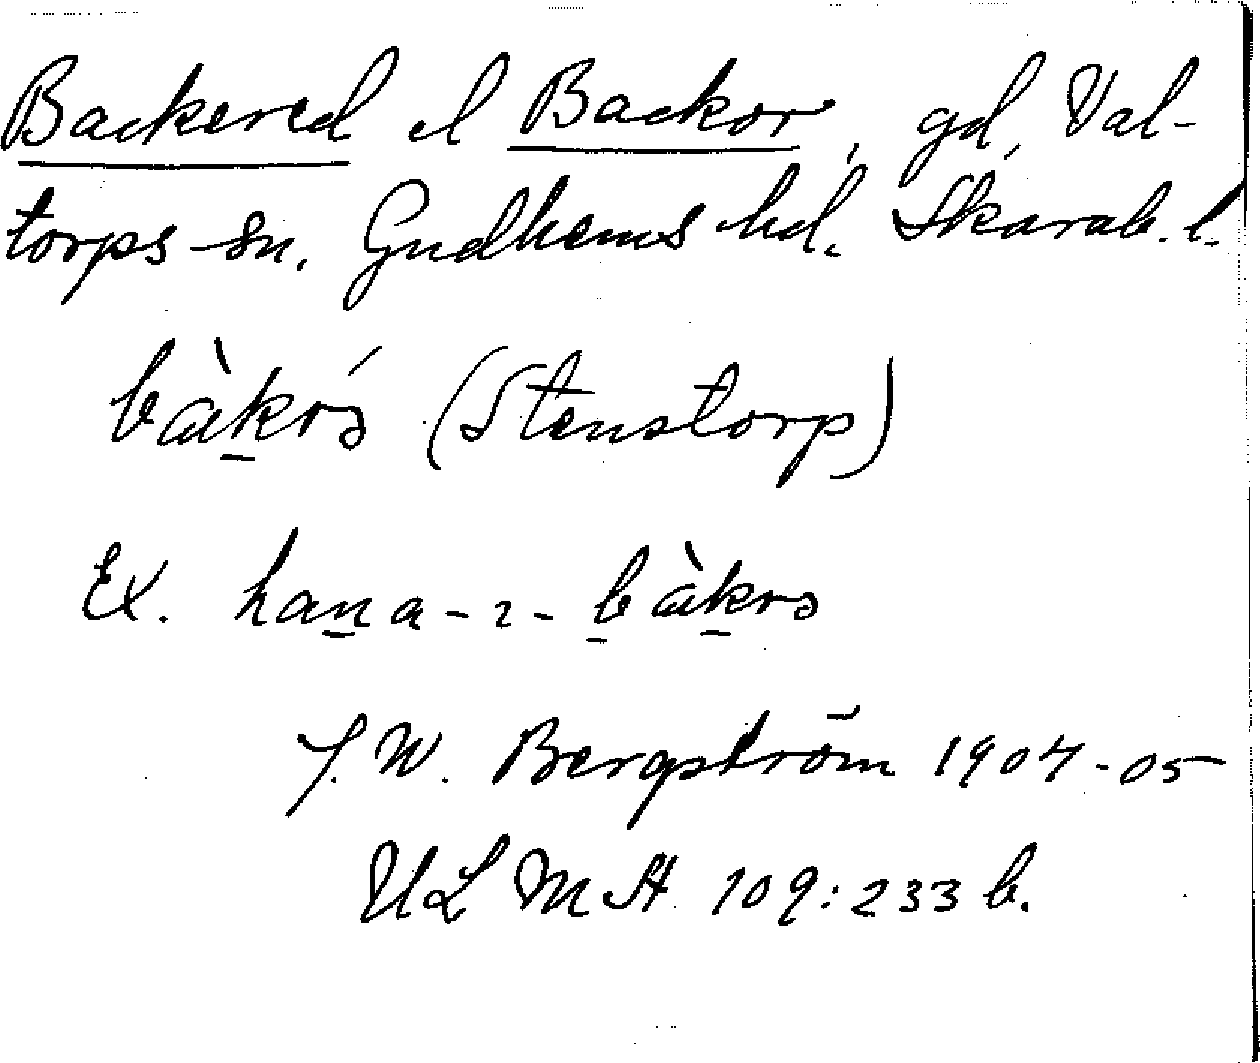 Backered el Backor, gd, Val-
torps sn. Gudhems hd. Skarab. l.
bàkrś (Stenstorp)
Ex. hana-ı-bàkrs
J. W. Bergström 1904-05
ULMA 109:233 b.